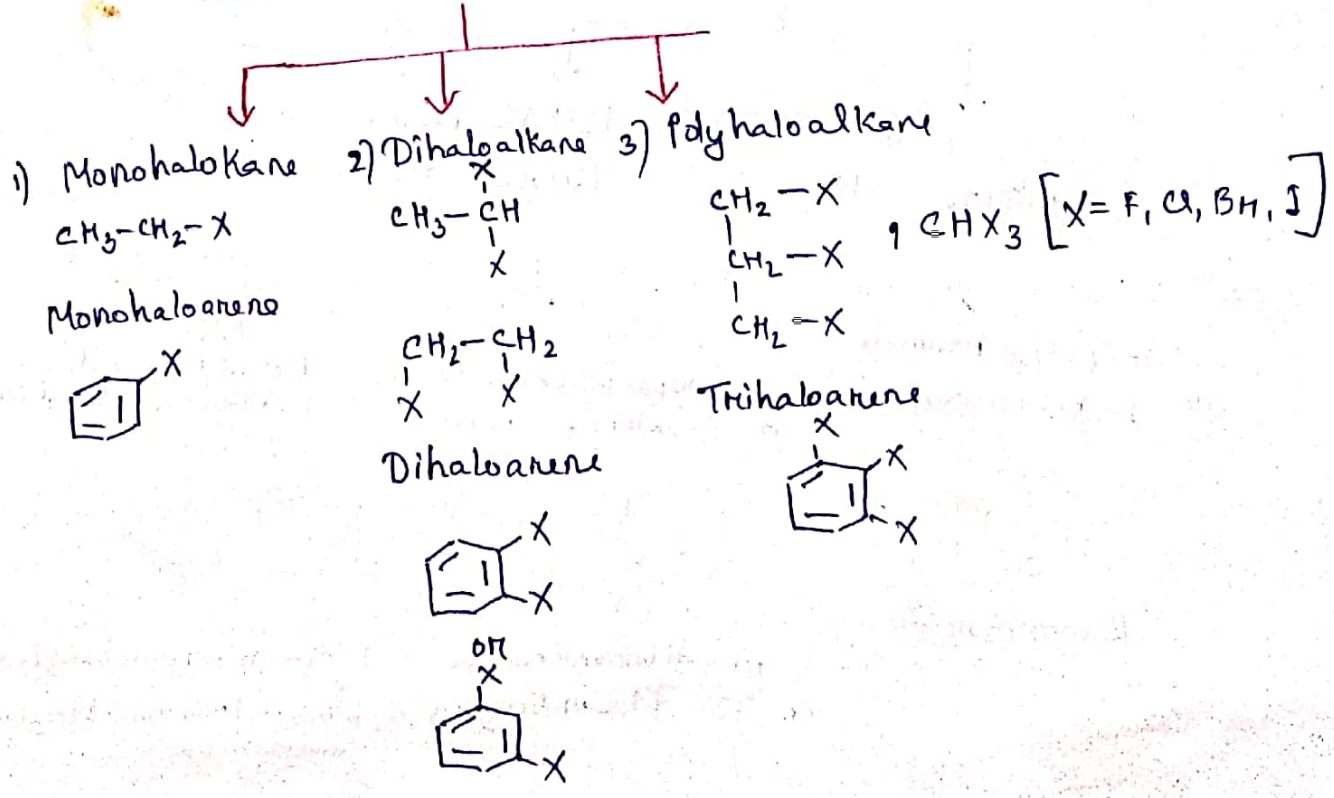 1) Monohalokane
CH3-CH2-X
Monohaloarene
X
2) Dihaloalkane
X
CH3-CH
X
CH2-CH2
X X
Dihaloarene
X
X
or
X
X
3) Polyhaloalkane
CH2-X
CH2-X
CH2-X
, CHX3 [X= F, Cl, Br, I]
Trihaloarene
X
X
X